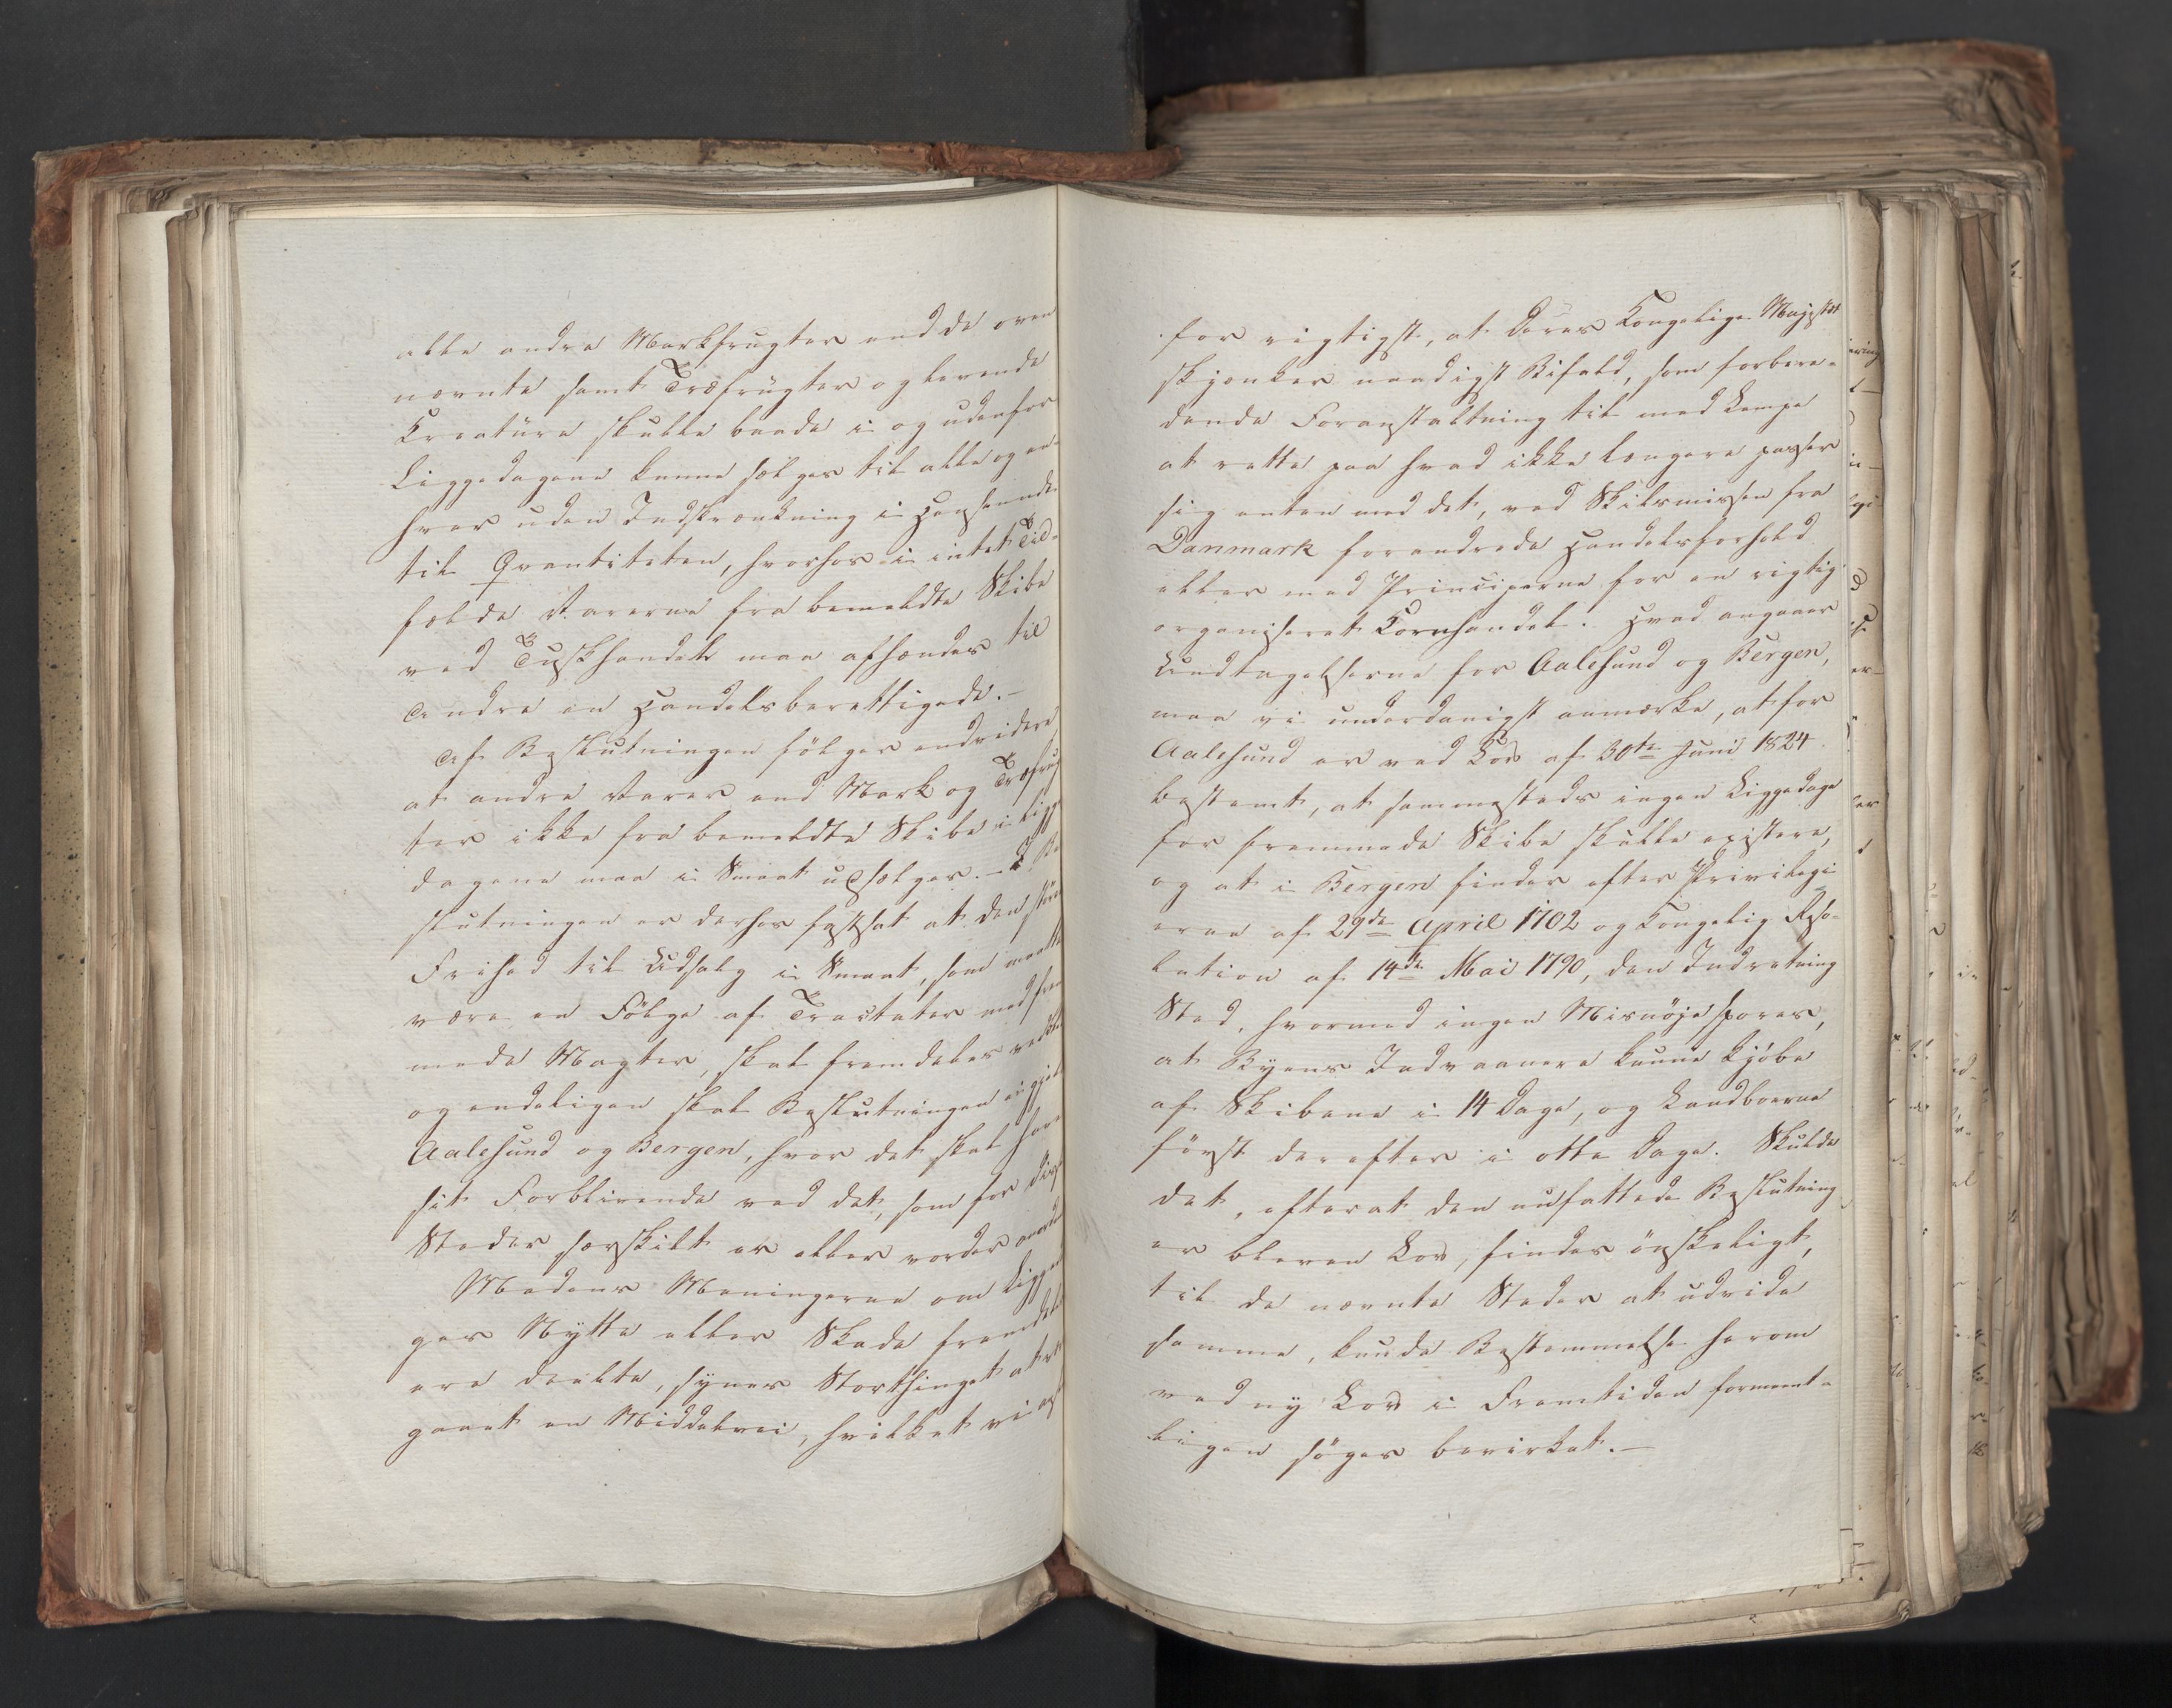 alle andre Markfrugter end de oven
nævnte samt Træfrugter og levende
Kreature skulle baade i og udenfor
Liggedagene kunne sælges til alle og en-
hver uden Indskrænkning i Henseende
til Qvantiteten, hvorhos i intet Til-
fælde Varerne fra bemeldte Skibe
ved Tuskhandel maa afhændes til
Andre en Handelsberettigede.-
Af Beslutningen fölger endvidere
at andre Varer end Mark og Træfrug
ter ikke fra bemeldte Skibe i Ligge
dagene maa i Smaat udsælges. - I Be
slutningen er derhos fastsat at den större
Frihed til Udsalg i Smaat, som maatte
være en Fölge af Tractater med frem
mede Magter, skal fremdeles vedblive
og endeligen skal Beslutningen ei gjelde
Aalesund og Bergen, hvor det skal have
sit Forblivende ved det, som for disse
Steder særskilt er eller vorder anordnet
Medens Meningerne om Liggeda
ges Nytte eller Skade fremdeles
ere deelte, synes Storthinget at
gaaet en Middelvei, hvilket vi
for rigtigst, at Deres Kongelige Majestæt
skjænker naadigst Bifald, som forbere-
dende Foranstaltning til med Lempe
at rette paa hvad ikke længere passer
sig enten med det, ved Skilsmissen fra
Danmark forandrede Handelsforhold
eller med Principerne for en rigtig
organiseret Kornhandel. Hvad angaaer
Undtagelserne for Aalesund og Bergen,
maa vi underdanigst anmærke, at for
Aalesund er ved Lov af 30te Juni 1824
bestemt, at sammesteds ingen Liggedage
for fremmede Skibe skulle existere,
og at i Bergen finder efter Privilegi
erne af 29de April 1702 og Kongelig Reso-
lution af 14de Mai 1790, den Indretning
Sted, hvormed ingen Misnöje spores,
at Byens Indvaanere kunne kjöbe
af Skibene i 14 Dage, og Landboerne
först derefter i otte Dage. Skulde
det, efterat den nufattede Beslutning
er bleven Lov, findes önskeligt,
til de nævnte Steder at udvide
samme, kunde Bestemmelse herom
ved ny Lov i Fremtiden formeent-
ligen söges bevirket.-